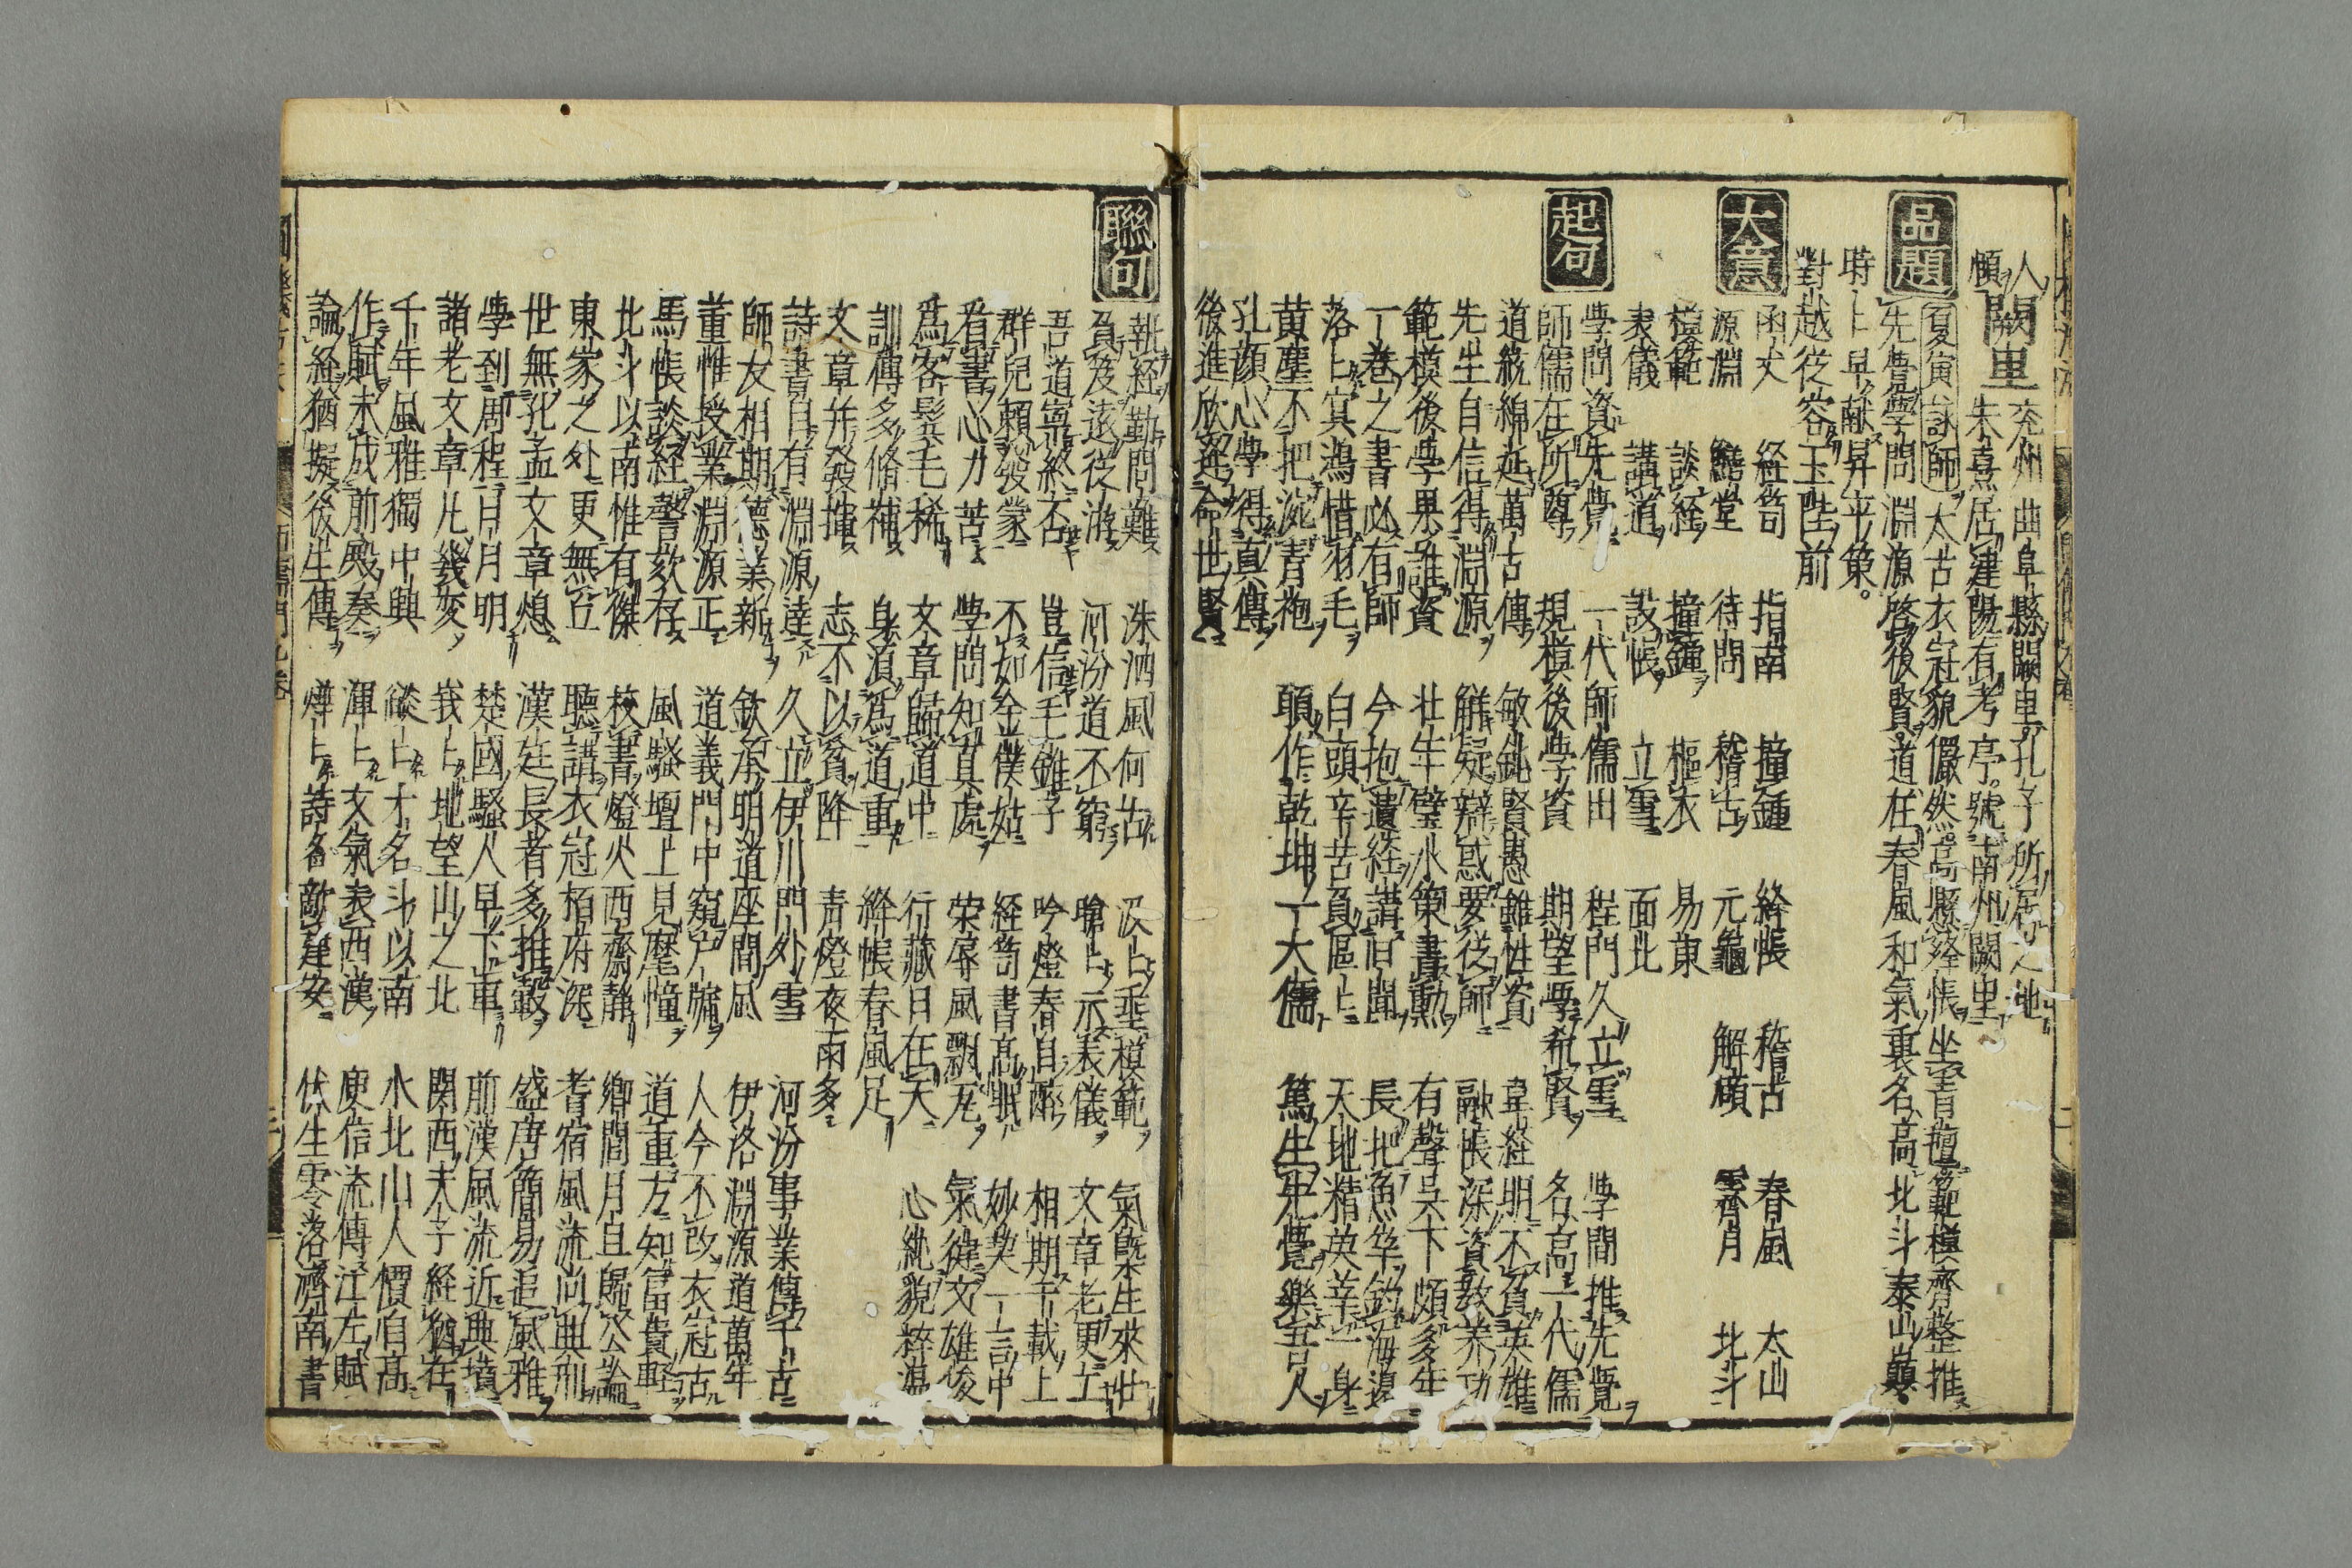 人 闕里 兗州曲阜縣闕里孔子所居之地
傾 朱熹居建陽有考亭號南州闕里
品題 夏寅詠師 太古衣冠貌儼然高懸絳帳坐青氊範模齊整推
先覺學問淵源啓後賢道在春風和氣裏名高北斗泰山巓
時上早献昇平策
對越從容玉陛前
大意 函丈 経笥 指南 撞鍾 絳帳 稽古 春風 太山
源淵 鱣堂 待問 稽古 元龜 解頤 霽月 北斗
模範 談経 撞鐘 樞衣 易東
表儀 講道 設帳 立雪 面北
起句 學問資先覺 一代師儒出 程門久立雪 學問推先覺
師儒在所尊 規模後學資 期望學希賢 名高一代儒
道統綿延萬古傳 敏鈍賢愚雖性資 韋経明不負英雄
先生自信得淵源 解疑辯惑要從師 融帳深資教養功
範模後學果誰資 壮年璧水策書勲 有聲吴下頗多年
一巻之書必有師 今抱遺経講旧聞 長把魚竿釣海邊
落上寞鴻惜羽毛 白頭辛苦負區上 天地精英萃一身
黄塵不把涴青袍 頥作乾坤一大儒 篤生先覺樂吾人
孔顔心學得真傳
後進欣逢命世賢
聯句 執経勤問難 洙泗風何古 汲上垂模範 氣旣生來壮
負笈遠從游 河汾道不窮 瞻上示表儀 文章老更工
吾道寧終否 豈信毛錐子 吟燈春自酔 相期千載上
群兒頼發蒙 不如金僕姑 経笥書高眠 妙契一言中
看書心力苦 學問知真處 榮辱風飄瓦 氣徤文雄俊
爲客髮毛稀 文章歸道中 行藏日在天 心純貌粹温
訓傳多脩補 身湏爲道重 絳帳春風足
文章并發揮 志不以貧降 青燈夜雨多
詩書自有淵源達 久立伊川門外雪 河汾事業傳千古
師友相期德業新 欽承明道座間風 伊洛淵源道萬年
董惟授業淵源正 道義門中窺户牖 人今不改衣冠古
馬帳談経謦欬存 風騷壇上見麾幢 道重方知富貴軽
北斗以南惟有傑 校書燈火西齋静 鄉間月旦歸公論
東家之处更無丘 聽講衣冠栢府深 耆宿風流尚典刑
世無孔孟文章熄 漢廷長者多推轂 盛唐簡易追風雅
學到周程日月明 楚國騷人早下車 前漢風流近典墳
諸老文章凡幾変 峩上地望山之北 関西夫子経猶在
千年風雅獨中興 縱上才名斗以南 水北山人價自高
作賦未成前殿奏 渾上文氣表西漢 庾信流傳江左賦
論経猶擬後生傳 燁上詩名敵建安 伏生零落濟南書